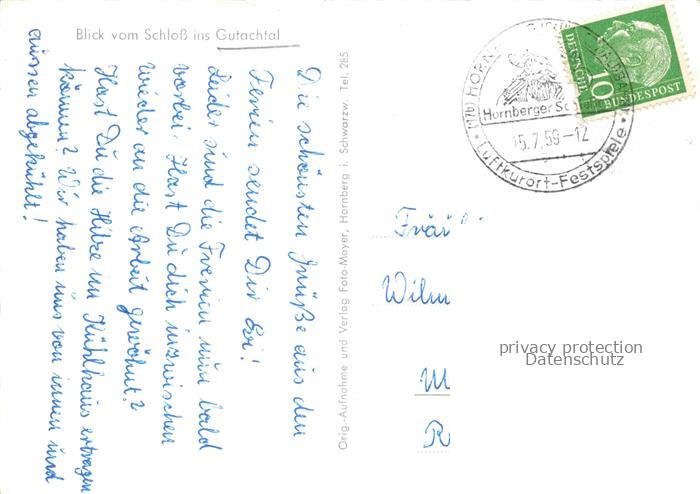 Blick vom Schloß ins Gutachtal
Die schönsten Grüße aus den
Ferien sendet Dir Evi!
Leider sind die Ferien nun bald
vorbei. Hast Du dich inzwischen
wieder an die Arbeit gewöhnt?
Hast Du die Hitze im Kühlhaus ertragen
können? Wir haben uns von innen und
aussen abgekühlt!
Orig.-Aufnahme und Verlag Foto-Mayer, Hornberg i. Schwarzw. Tel. 285
(17b) HORN
Hornberger Sch
15.7.59-12
Luftkurort-Festspiele
DEUTSCHE
10
BUNDESPOST
Fräu
Wilm
M
R
privacy protection
Datenschutz